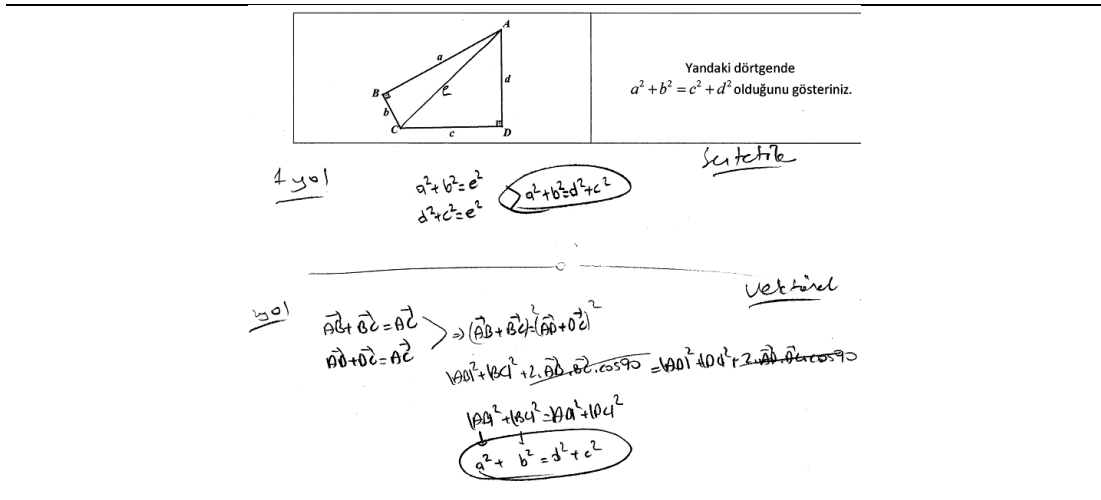 A
a
B
e
d
b
C
c
D
Yandaki dörtgende
a² + b² = c² + d² olduğunu gösteriniz.
Sentetik
1 yol
a²+b²=e²
d²+c²=e²
a²+b²=d²+c²
Vektörel
yol
AB⃗ + BC⃗ = AC⃗
AD⃗ + DC⃗ = AC⃗
⇒ (AB⃗ + BC⃗)² = (AD⃗ + DC⃗)²
|AB|² + |BC|² + 2.AB⃗.BC⃗.cos90 = |AD|² + |DC|² + 2.AD⃗.DC⃗.cos90
|AB|² + |BC|² = |AD|² + |DC|²
a² + b² = d² + c²